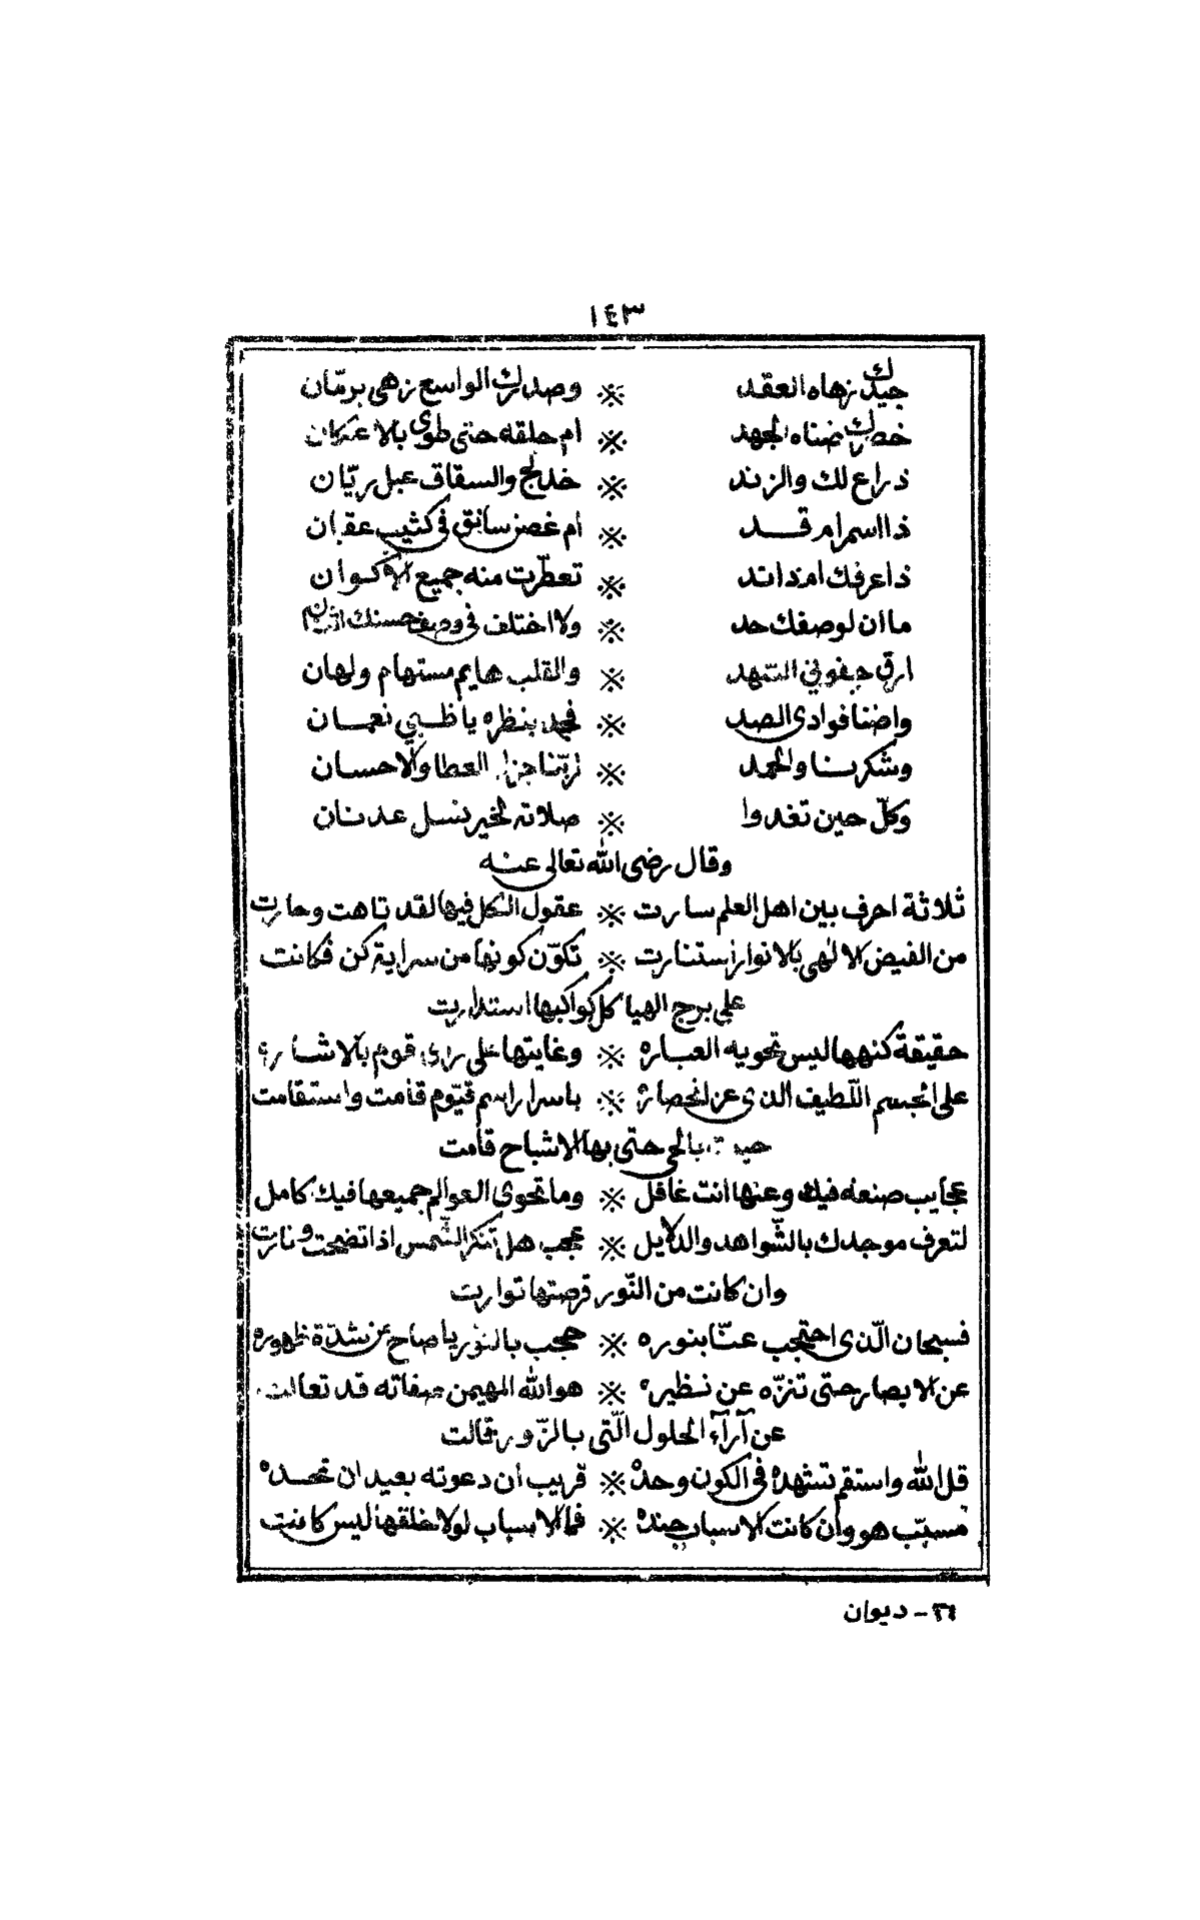 ١٤٣
جيدك زهاه العقد ※ وصدرك الواسع زهى برمّان
خصرك ضناه الجهد ※ ام حلقه حتى طوى بالاعكان
ذراع لك والزند ※ خدلج والسقاق عبل ريّان
ذا اسمر ام قد ※ ام غصن سابق فى كثيب عقبان
ذا عرفك ام ند اتد ※ تعطّرت منه جميع الاكوان
ما ان لوصفك حد ※ ولا اختلف فى وصف حسنك
ارق جفونى السهد ※ والقلب هايم مستهام ولهان
واضنا فوادى الصد ※ فجد بنظره يا ظبي نعمان
وشكرنا والحمد ※ لربّنا جزل العطا والاحسان
وكلّ حين تغدوا ※ صلاته لخير نسل عدنان
وقال رضى الله تعالى عنه
ثلاثة احرف بين اهل العلم سارت ※ عقول الكل فيها لقد تاهت وحارت
من الفيض الالهى بالانوار استنارت ※ تكوّن كونها من سر اية كن فكانت
على برج الهياكل كواكبها استدارت
حقيقة كنهها ليس تحويه العباره ※ وغايتها على راى قوم بالاشاره
على الجسم اللّطيف الذى عن انحصاره ※ باسرار اسم قيّوم قامت واستقامت
بالحى حتى بها الاشباح قامت
عجايب صنعه فيك وعنها انت غافل ※ وما تحوى العوالم جميعها فيك كامل
لتعرف موجدك بالشّواهد والدلايل ※ عجب هل تنكر الشّمس اذا تضحت ونارت
وان كانت من النّور قرصتها توارت
فسبحان الّذى احتجب عنّا بنوره ※ حجب بالنور يا صاح من شدّة ظهوره
عن الابصار حتى تنزّه عن نظيره ※ هو الله المهيمن صفاته قد تعالت
عن آرآء الحلول الّتى بالزّور قالت
قل الله واستقم تشهده فى الكون وحده ※ قريب ان دعوته بعيد ان تحده
مسبّب هو وان كانت الاسباب جنده ※ فما الاسباب لولا خلقها ليس كانت
ديوان